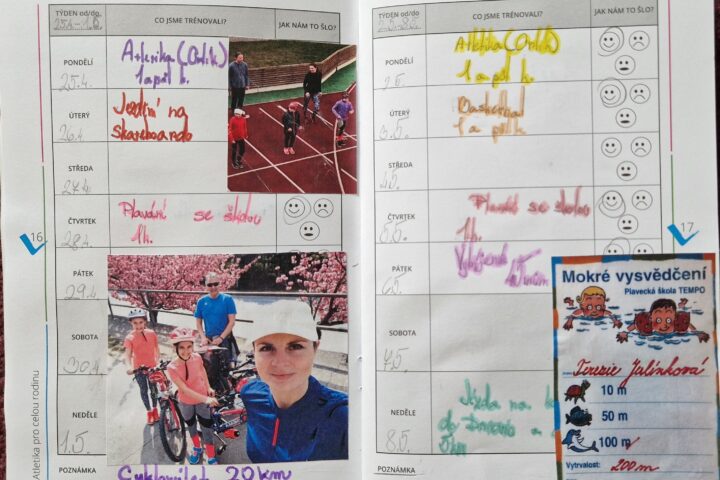 TÝDEN od/do
25.4.-1.5.
CO JSME TRÉNOVALI?
JAK NÁM TO ŠLO?
PONDĚLÍ
25.4.
Atletika (Orlík)
1 a půl h.
ÚTERÝ
26.4.
Jezdění na
skateboardo
STŘEDA
27.4.
ČTVRTEK
28.4.
Plavání se školou
1h.
PÁTEK
29.4.
SOBOTA
30.4.
NEDĚLE
1.5.
POZNÁMKA
Cyklovýlet 20 km
16
Atletika pro celou rodinu
TÝDEN od/do
CO JSME TRÉNOVALI?
JAK NÁM TO ŠLO?
PONDĚLÍ
Atletika (Orlík)
1 a půl h.
ÚTERÝ
3.5.
Basketbal
1 a půl h.
STŘEDA
4.5.
ČTVRTEK
5.5.
Plavání se školou
1h.
PÁTEK
6.5.
SOBOTA
7.5.
NEDĚLE
8.5.
Jízda na
do
a
5km
POZNÁMKA
17
Mokré vysvědčení
Plavecká škola TEMPO
Terezie Jalinková
10 m
50 m
100 m
Vytrvalost: 200m